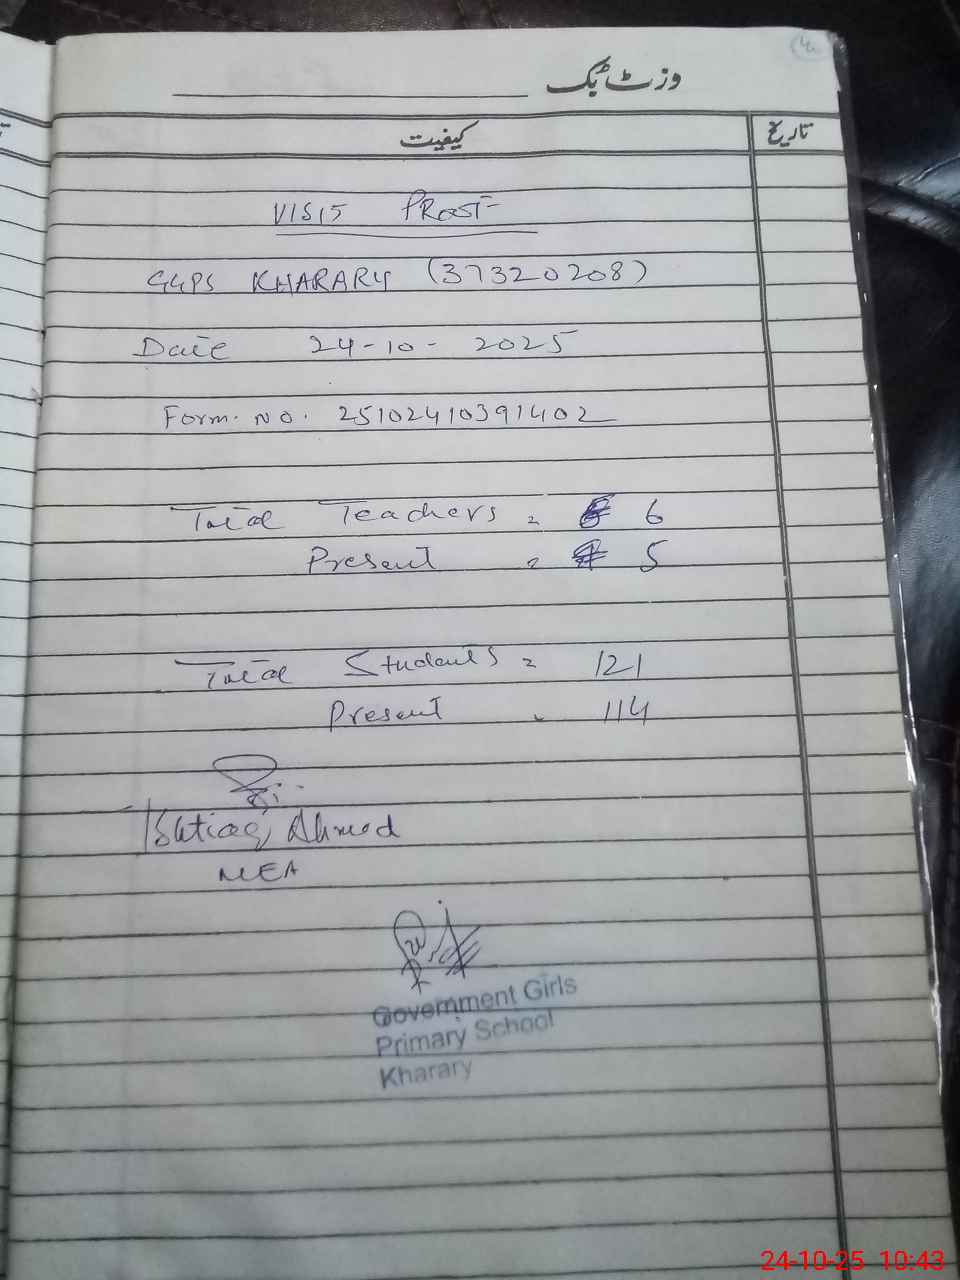 وزٹ بک
کیفیت
تاریخ
VISIT PROOF
GGPS KHARARY (37320208)
Date 24-10-2025
Form. No. 25102410391402
Total Teachers = 6
Present = 5
Total Students = 121
Present = 114
Ishtiaq Ahmad
MEA
Government Girls
Primary School
Kharary
24-10-25 10:43